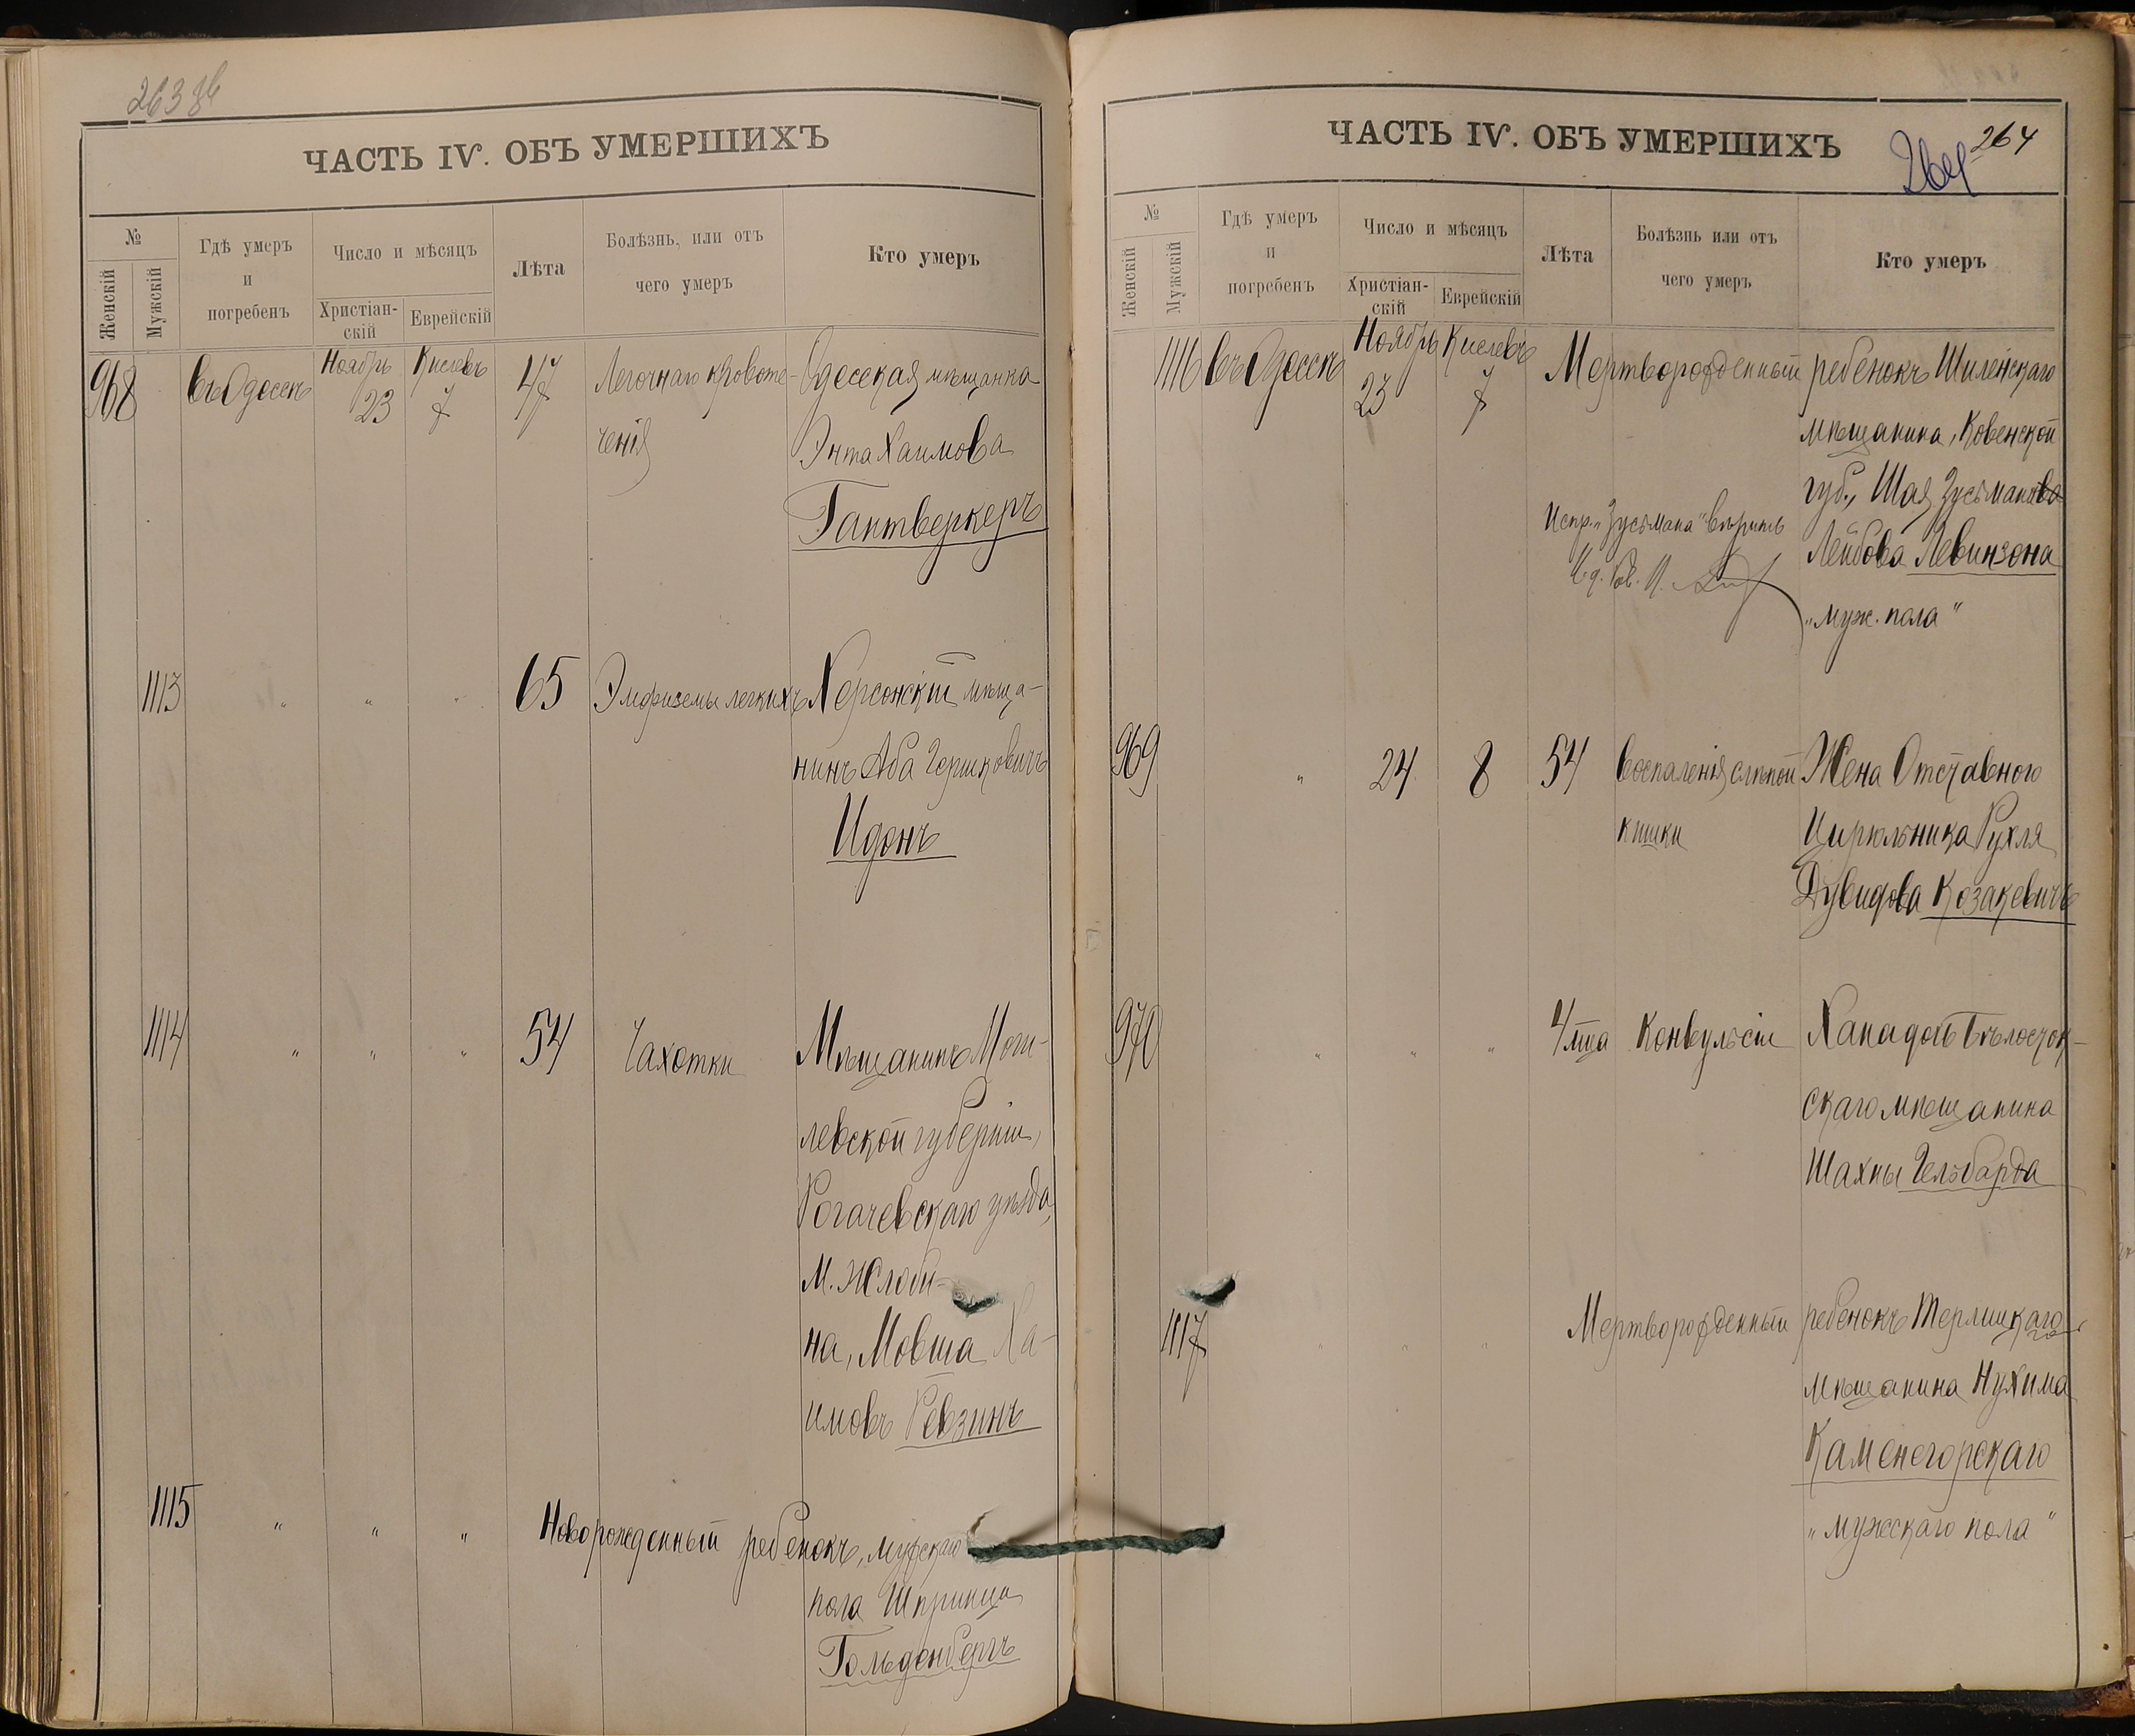 263 об
ЧАСТЬ IV. ОБЪ УМЕРШИХЪ
№
Женскій
Мужскій
Гдѣ умеръ
и
погребенъ
Число и мѣсяцъ
Христіан-
скій
Еврейскій
Лѣта
Болѣзнь, или отъ
чего умеръ
Кто умеръ
968 въ Одессѣ Ноябрь 23 Кислевъ 7 47 Легочнаго кровоте- Одесская мѣщанка
ченія Энта Хаимова
Гантверкеръ
1113 " " " 65 Эмфиземы легкихъ Херсонскій мѣща-
нинъ Аба Гершковичъ
Идонъ
1114 " " " 54 Чахотки Мѣщанинъ Моги-
левской губерніи,
Рогачевскаго уѣзда,
М. Жлоби-
на, Мовша Ха-
имовъ Ревзинъ
1115 " " " Новорожденный ребенокъ, мужскаго
пола Шпринца
Гольденбергъ
ЧАСТЬ IV. ОБЪ УМЕРШИХЪ
264 264
№
Женскій
Мужскій
Гдѣ умеръ
и
погребенъ
Число и мѣсяцъ
Христіан-
скій
Еврейскій
Лѣта
Болѣзнь или отъ
чего умеръ
Кто умеръ
1116 въ Одессѣ Ноябрь 23 Кислевъ 7 Мертворожденный ребенокъ Шиленскаго
мѣщанина, Ковенской
губ., Шая Зусьманова
Испр. "Зусьмана" вѣрить Лейбова Левинзона
"муж. пола"
969 " 24 8 54 Воспаленія слѣпой Жена Отставного
кишки Цирюльника Рухля
Дувидова Козакевичъ
970 " " " 4 мца Конвульсіи Хана дочь Бѣлосток-
скаго мѣщанина
Шахны Гельбарда
1117 " " " Мертворожденный ребенокъ Терлицкаго
мѣщанина Нухима
Каменегорскаго
"мужскаго пола"